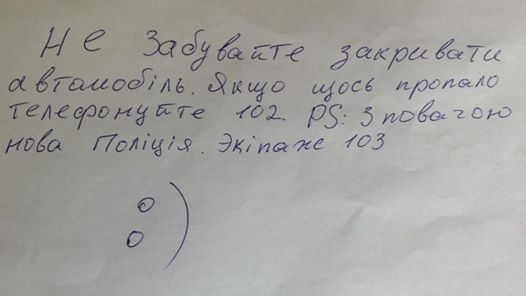 Не Забувайте закривати
автомобіль. Якщо щось пропало
телефонуйте 102. PS: З повагою
нова Поліція. Экіпаж 103
:)